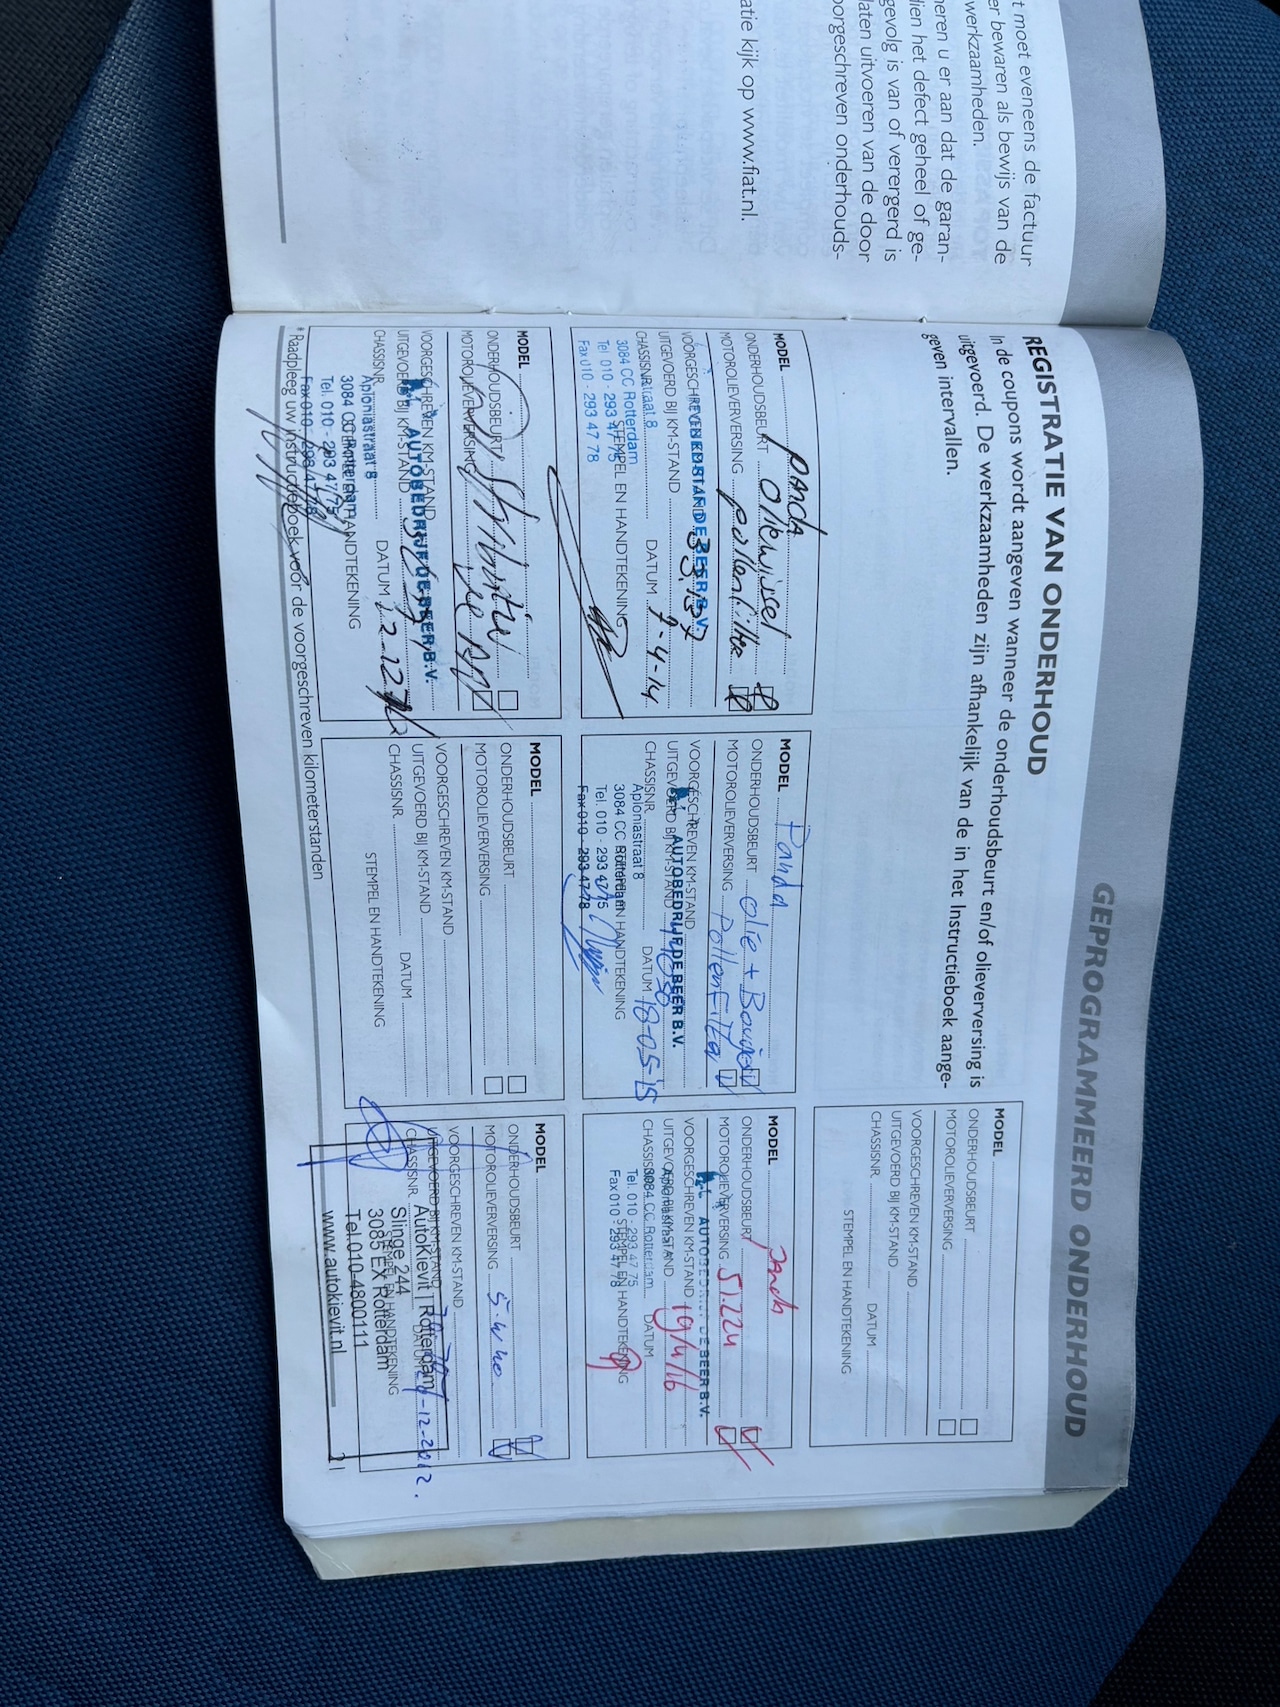 t moet eveneens de factuur
er bewaren als bewijs van de
werkzaamheden.
neren u er aan dat de garan-
dien het defect geheel of ge-
gevolg is van of verergerd is
laten uitvoeren van de door
orgeschreven onderhouds-
atie kijk op www.fiat.nl.
GEPROGRAMMEERD ONDERHOUD
REGISTRATIE VAN ONDERHOUD
In de coupons wordt aangeven wanneer de onderhoudsbeurt en/of olieverversing is
uitgevoerd. De werkzaamheden zijn afhankelijk van de in het Instructieboek aange-
geven intervallen.
MODEL
ONDERHOUDSBEURT
MOTOROLIEVERVERSING
VOORGESCHREVEN KM-STAND
UITGEVOERD BIJ KM-STAND
CHASSISNR. DATUM
STEMPEL EN HANDTEKENING
MODEL Panda
ONDERHOUDSBEURT oliewissel
MOTOROLIEVERVERSING pollenfilter
AUTOBEDRIJF DE BEER B.V.
UITGEVOERD BIJ KM-STAND
CHASSISNR. DATUM 7-4-14
3084 CC Rotterdam
STEMPEL EN HANDTEKENING
Tel. 010 - 293 47 75
Fax 010 - 293 47 78
MODEL Panda
ONDERHOUDSBEURT olie + Bougies
MOTOROLIEVERVERSING Pollenfilter
VOORGESCHREVEN KM-STAND
AUTOBEDRIJF DE BEER B.V.
UITGEVOERD BIJ KM-STAND
CHASSISNR. DATUM 18-05-'15
Aploniastraat 8
3084 CC Rotterdam
STEMPEL EN HANDTEKENING
Tel. 010 - 293 47 75
Fax 010 - 293 47 78
MODEL Panda
ONDERHOUDSBEURT
MOTOROLIEVERVERSING 51.224
AUTOBEDRIJF DE BEER B.V.
VOORGESCHREVEN KM-STAND 19/4/16
UITGEVOERD BIJ KM-STAND
Aploniastraat 8
CHASSISNR. DATUM
3084 CC Rotterdam
Tel. 010 - 293 47 75
STEMPEL EN HANDTEKENING
Fax 010 - 293 47 78
MODEL
ONDERHOUDSBEURT
MOTOROLIEVERVERSING
VOORGESCHREVEN KM-STAND
AUTOBEDRIJF DE BEER B.V.
UITGEVOERD BIJ KM-STAND
CHASSISNR. DATUM
Aploniastraat 8
3084 CC Rotterdam
STEMPEL EN HANDTEKENING
Tel. 010 - 293 47 75
Fax 010 - 293 47 78
MODEL
ONDERHOUDSBEURT
MOTOROLIEVERVERSING
VOORGESCHREVEN KM-STAND
UITGEVOERD BIJ KM-STAND
CHASSISNR. DATUM
STEMPEL EN HANDTEKENING
MODEL
ONDERHOUDSBEURT
MOTOROLIEVERVERSING 5.w40
VOORGESCHREVEN KM-STAND
UITGEVOERD BIJ KM-STAND
CHASSISNR. DATUM
AutoKievit | Rotterdam
Slinge 244
STEMPEL EN HANDTEKENING
3085 EX Rotterdam
Tel.010-4800111
www.autokievit.nl
* Raadpleeg uw instructieboek voor de voorgeschreven kilometerstanden
21